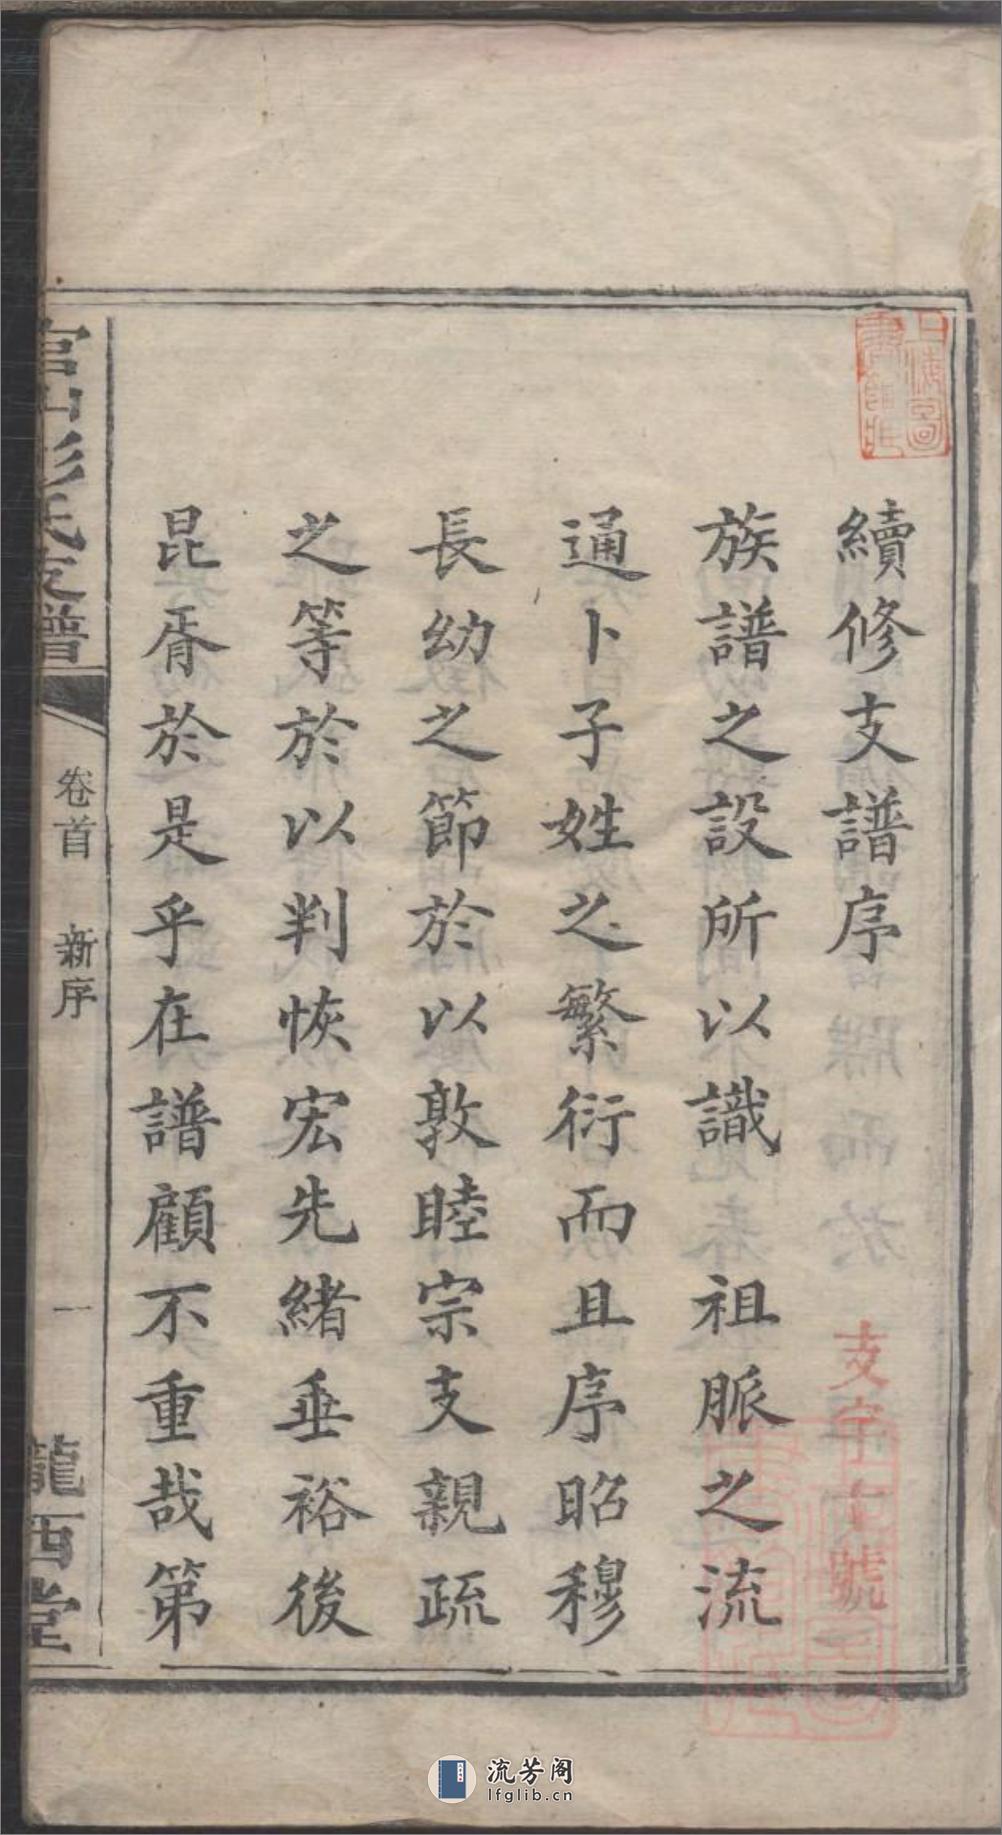 續修支譜序
族譜之設所以識祖脈之流
通卜子姓之繁衍而且序昭穆
長幼之節於以敦睦宗支親疏
之等於以判恢宏先緒垂裕後
昆胥於是乎在譜顧不重哉第
官山彭氏支譜
卷首 新序
一
隴西堂
上海圖書館藏
支字 號
流芳阁
lfglib.cn